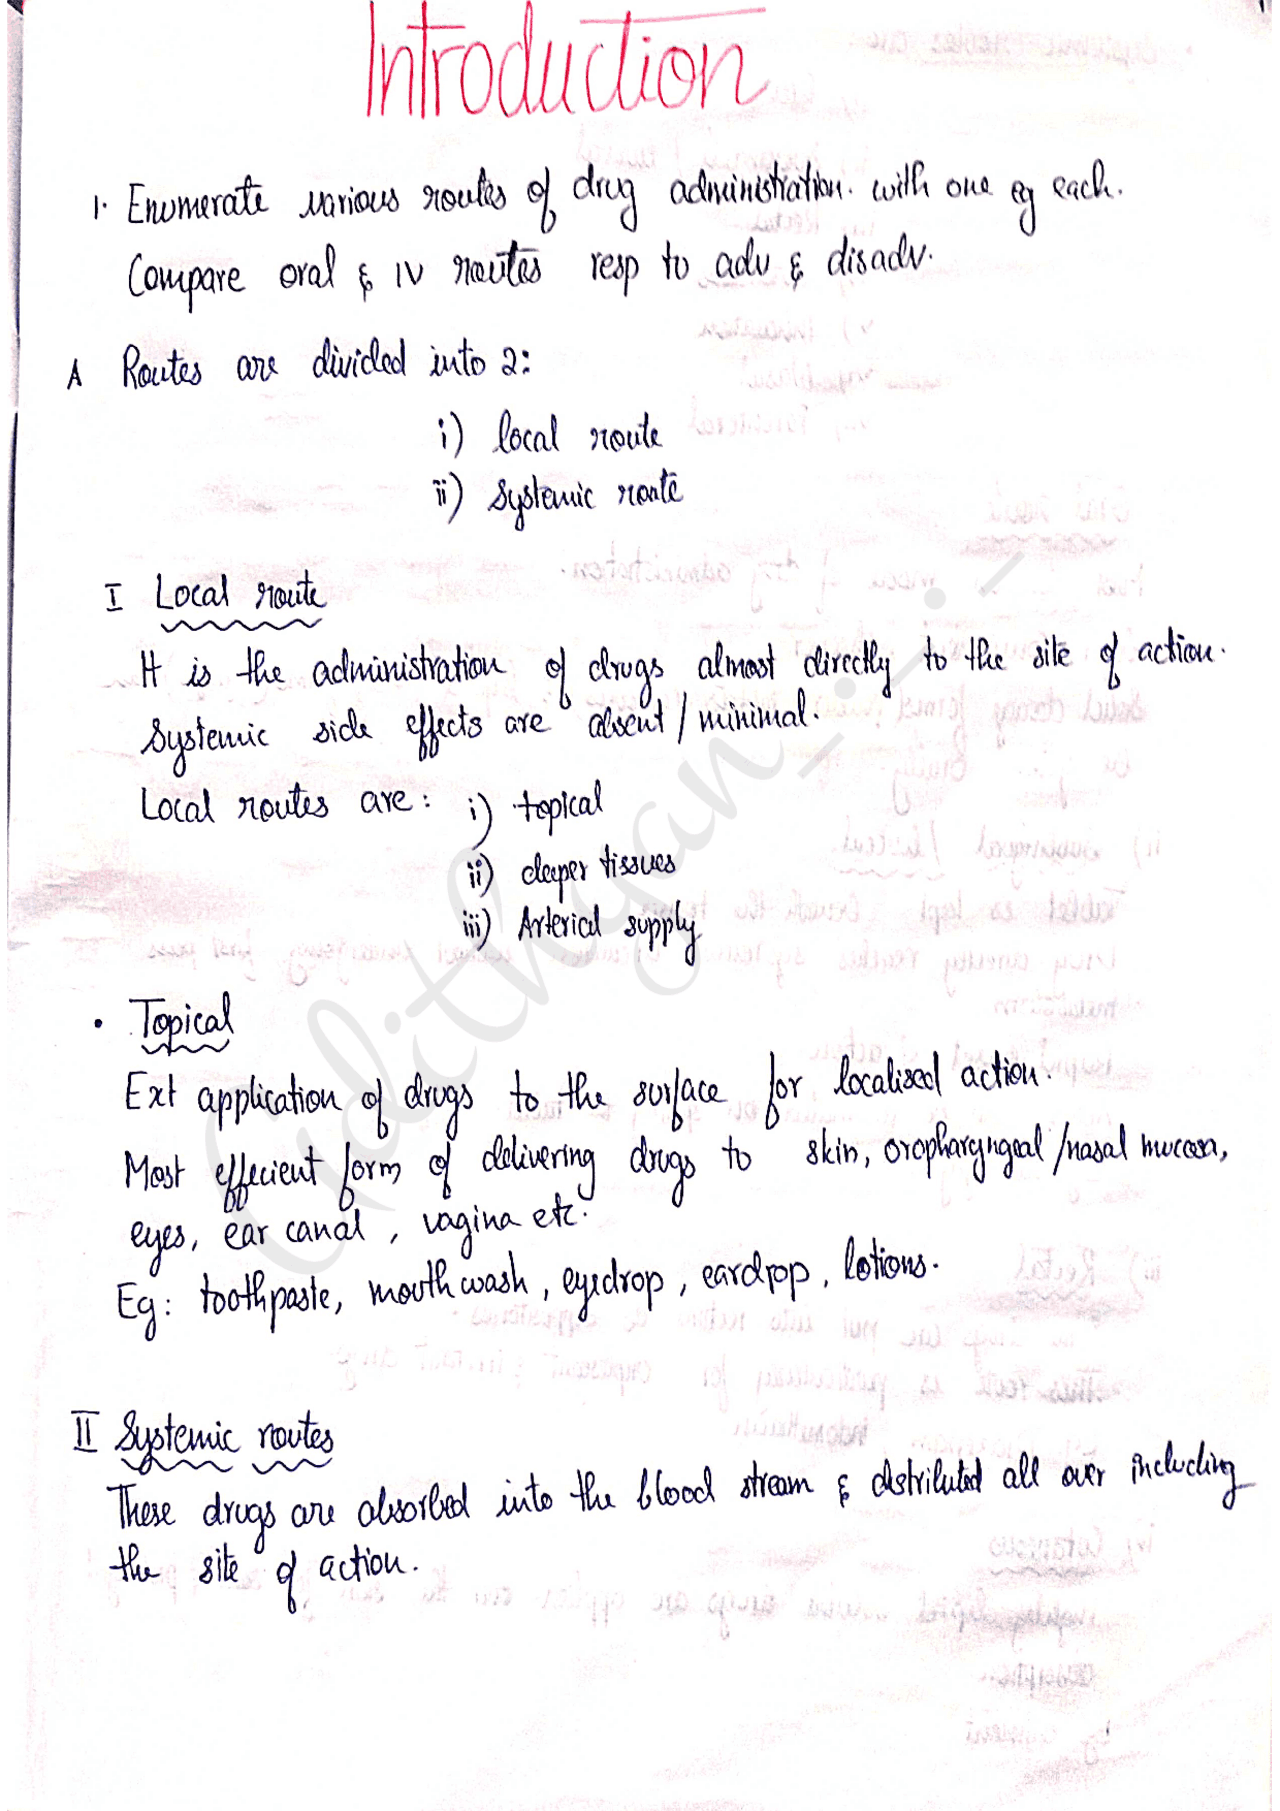 Introduction
1. Enumerate various routes of drug administration. with one eg each.
Compare oral & IV routes resp to adv & disadv.
A Routes are divided into 2:
i) local route
ii) systemic route
I Local route
It is the administration of drugs almost directly to the site of action.
Systemic side effects are absent / minimal.
Local routes are: i) topical
ii) deeper tissues
iii) Arterial supply
• Topical
Ext application of drugs to the surface for localised action.
Most effecient form of delivering drugs to skin, oropharyngeal /nasal mucosa,
eyes, ear canal, vagina etc.
Eg: toothpaste, mouthwash, eyedrop, eardrop, lotions.
II Systemic routes
These drugs are absorbed into the blood stream & distributed all over including
the site of action.